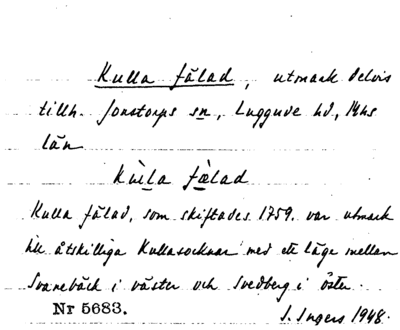 Kulla fälad, utmark delvis
tillh. Jonstorps sn, Luggude hd, Mhs
län
Kùlla fælad
Kulla fälad, som skiftades 1759. var utmark
till åtskilliga Kullasocknar med ett läge mellan
Svanebäck i väster och Svedberg i öster.
Nr 5683.
I. Ingers 1948.